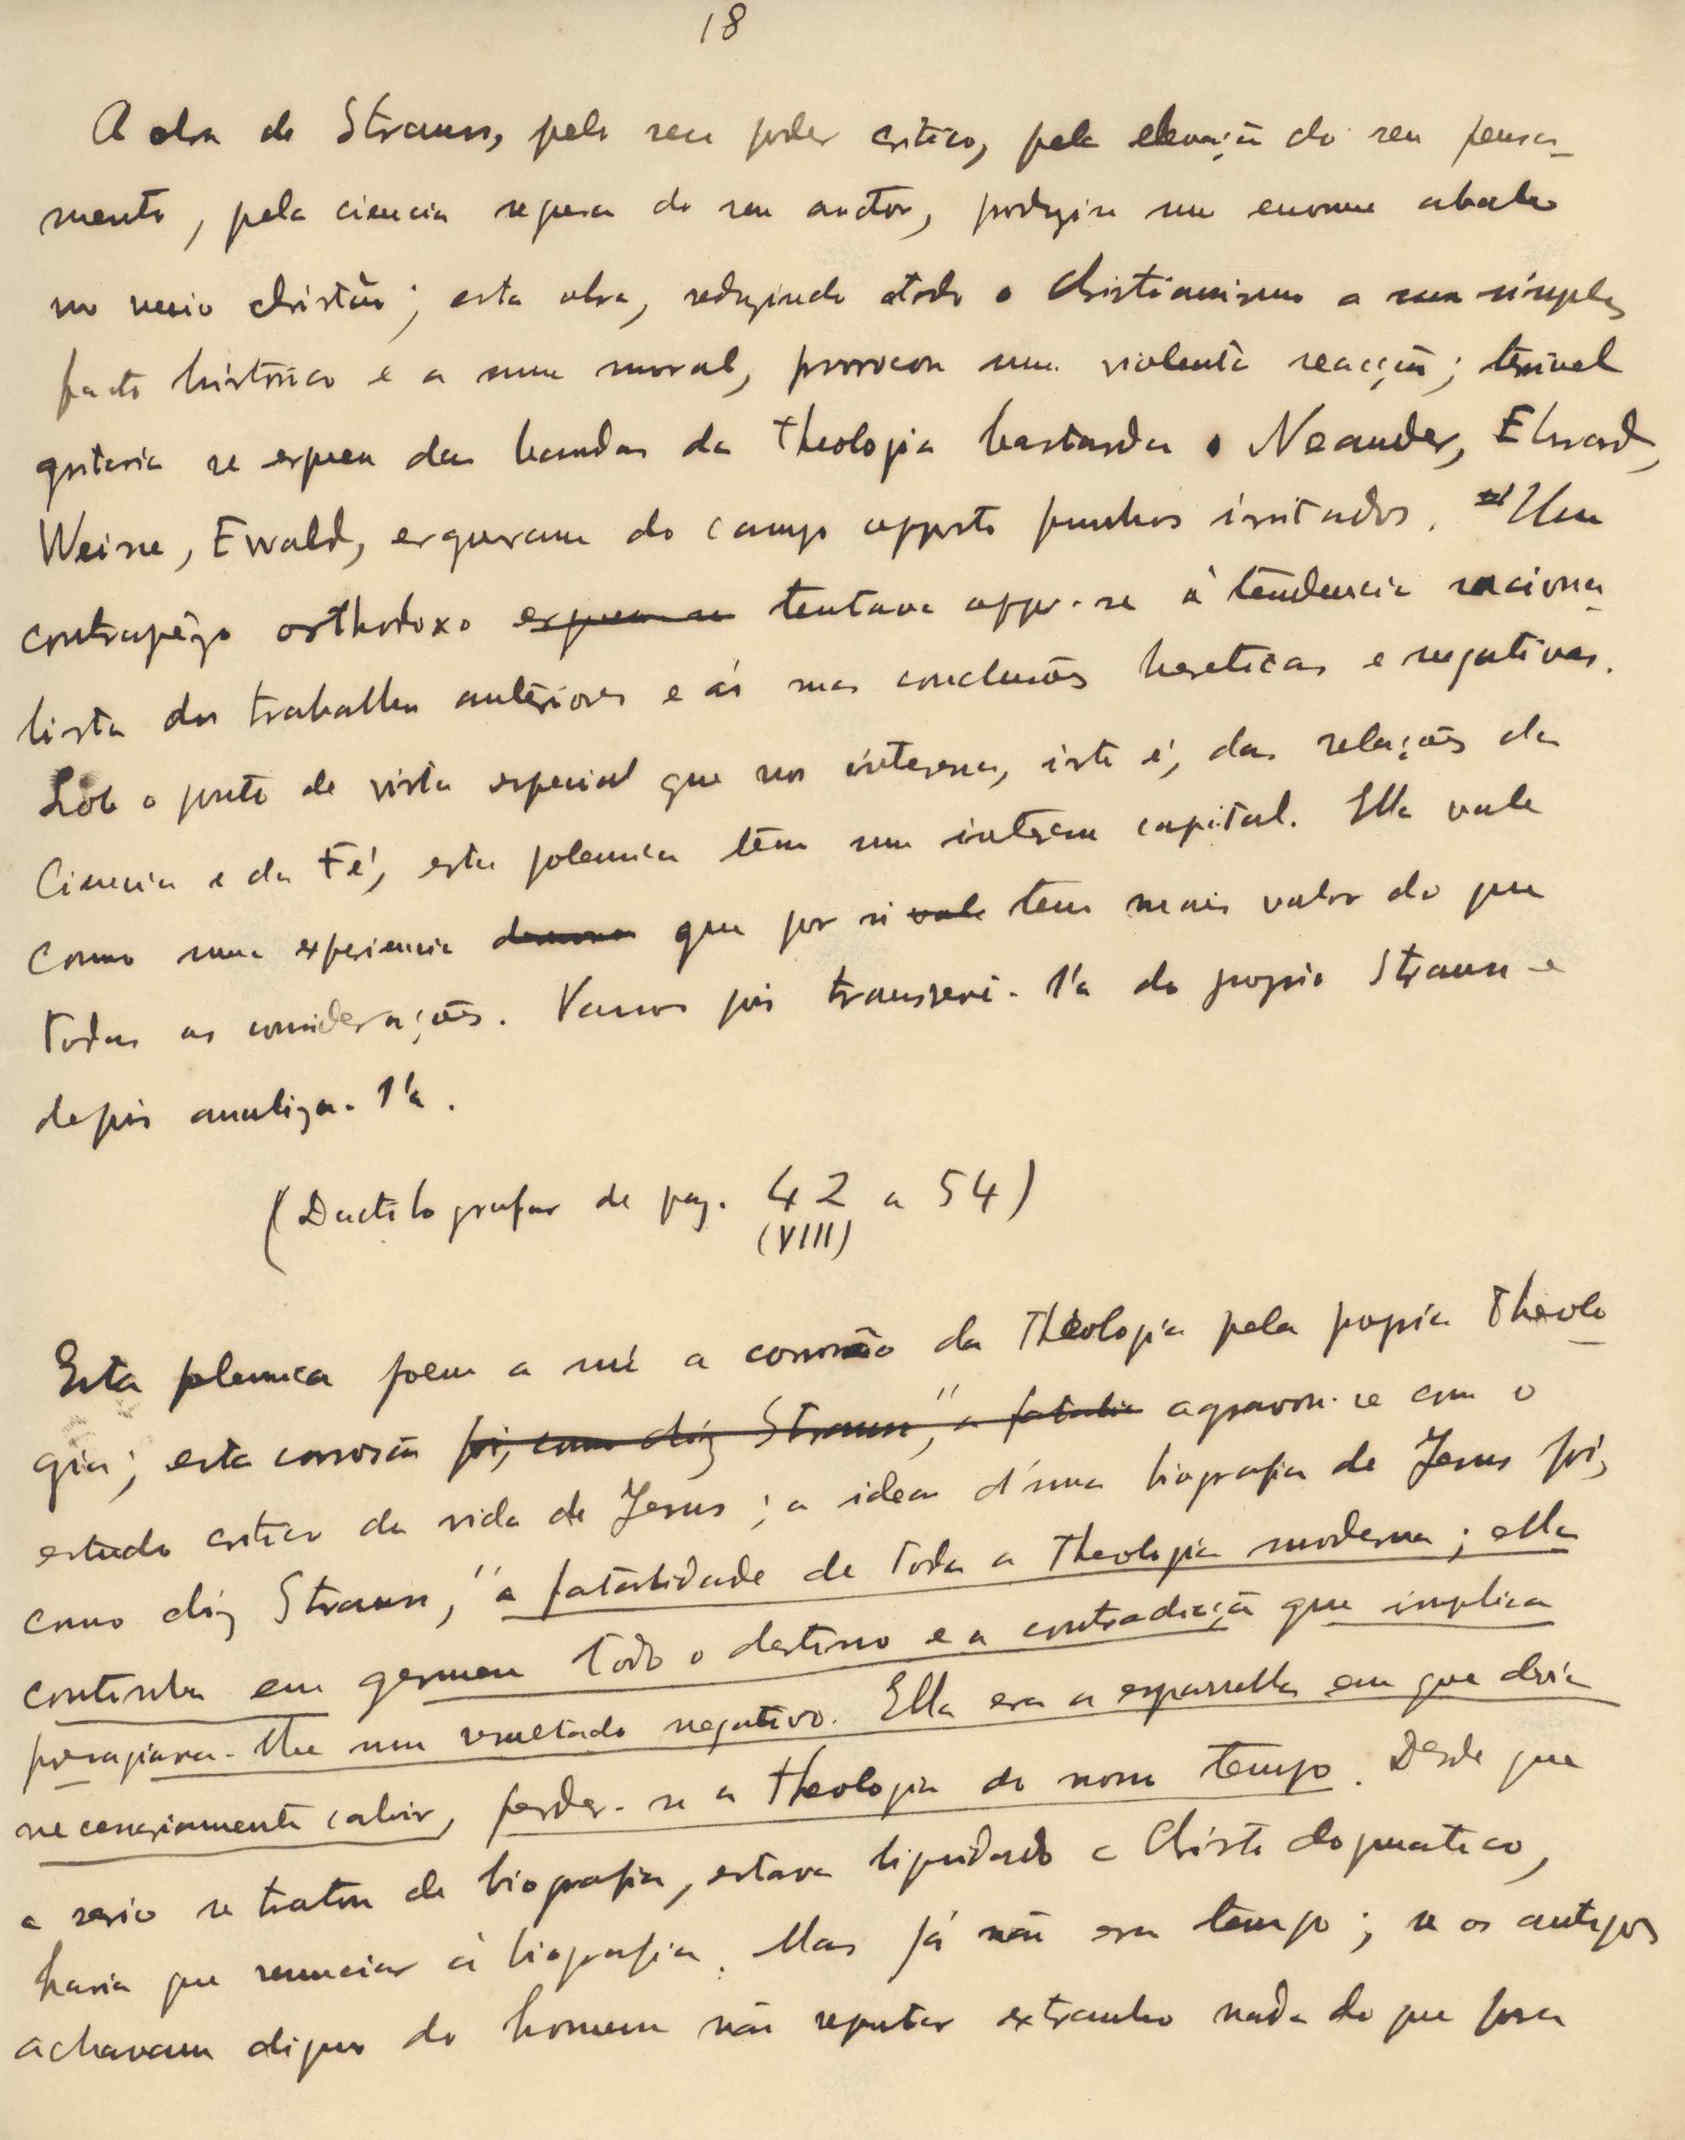 18
A obra de Strauss, pelo seu poder critico, pela elevação do seu pensa-
mento, pela ciencia segura do seu auctor, produziu um enorme abalo
no meio christão; esta obra, reduzindo todo o Christianismo a um simples
facto historico e a uma moral, provocou uma violenta reacção; terrivel
gritaria se ergueu das bandas da theologia bastarda. Neander, Ebrard,
Weisse, Ewald, ergueram do campo opposto punhos irritados. Um
contrapêzo orthodoxo ergueu-se tentava oppor-se á tendencia raciona-
lista dos trabalhos anteriores e ás suas conclusões hereticas e negativas.
Sob o ponto de vista especial que nos interessa, isto é, das relações da
Ciencia e da Fé, esta polemica têm um interesse capital. Ella vale
como uma experiencia que por si vale tem mais valor do que
todas as considerações. Vamos pois transcrevê-l'a do proprio Strauss e
depois analiza-l'a.
(Dactilografar de pag. 42 a 54)
(VIII)
Esta polemica poem a nú a corrosão da Theologia pela propria Theolo-
gia; esta corrosão foi, como diz Strauss, "a fatalid aggravou-se com o
estudo critico da vida de Jesus; a idea d'uma biografia de Jesus foi,
como diz Strauss, "a fatalidade de toda a Theologia moderna; ella
continha em germen todo o destino e a contradicção que implica
presagiava-lhe um resultado negativo. Ella era a esparrella em que devia
necessariamente cahir, perder-se a theologia do nosso tempo. Desde que
a serio se tratou de biografia, estava liquidado o Christo dogmatico,
havia que renunciar á biografia. Mas já não era tempo; se os antigos
achavam digno do homem não reputar extranho nada do que fora